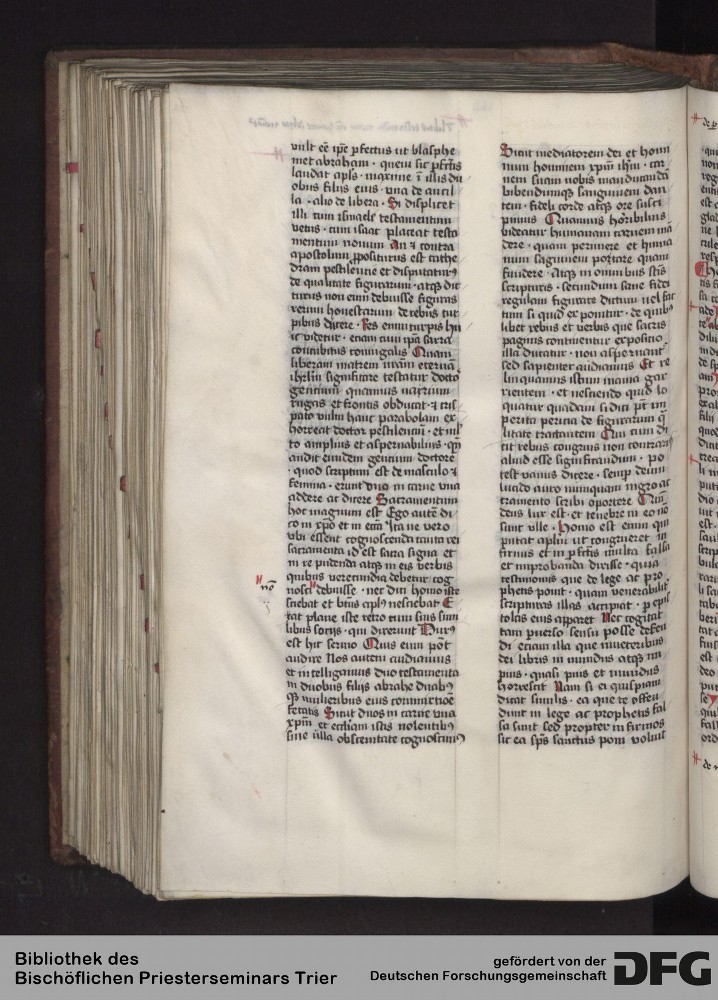 vult eē ip̄e ꝑfectus ut blasphe
met abraham · quem sic ꝑfcīs
laudat apl̄s · maxime ī illis du
obus filijs eius · vna de ancil
la · alio de libera · Si displicet
illi cum ismaele testamentum
vetus · cum isaac placeat testa
mentum nouum An ⁊ contra
apostolum ꝓpositurus est cathe
dram pestilentie et disputaturꝰ
de qualitate figurarum · atqꝫ dic
turus non eum debuisse figuras
rerum honestarum de rebus tur
pibus dicere · Res enim turpis hu
ic videtur · etiam cum ip̄a sarra
concubitus coniugalis Quam
liberam matrem nr̄am eternā
ihrl̄m significare testatur docto
gentium quamuis narrium
rugas et frontis obducat · ⁊ cris
pato vultu hanc parabolam ex
horreat doctor pestilencium · et ml̄
to amplius et aspernabilius · qꝫ
audit eundem gentium doctorē
· quod scriptum est de masculo ⁊
femina · erunt duo in carne vna
addere ac dicere Sacramentum
hoc magnum est Ego autē di
co in xp̄o et in ecc̄a Ita ne vero
vbi essent cognoscenda tanta rei
sacramenta id est sacra signa et
in re pudenda atqꝫ in eis verbis
quibus verecundia debetur cog
nosci debuisse · nec dici homo iste
sciebat et btūs apl̄s nesciebat E
rat plane iste retro cum suis simi
libus socijs · qui dixerunt Durꝰ
est hic sermo Quis eum pōt
audire Nos autem audiamus
et intelligamus duo testamenta
in duobus filijs abrahe duabꝫ
qꝫ mulieribus eius commixtiōē
fetatis Sicut duos in carne vna
xp̄m et eccliam istis nolentibꝫ
sine ulla obscenitate cognoscimꝰ
nō
Sicut mediatorem dei et homi
num hominem xp̄m ihm̄ · car
nem suam nobis manducandā
bibendumqꝫ sanguinem dan
tem · fideli corde atqꝫ ore susci
pimus Quamuis horibilius
videatur humanam carnem mā
dere · quam perimere et huma
num sanguinem portare quam
fundere · Atqꝫ in omnibus scīs
scripturis · secundum sane fidei
regulam figurate dictum uel fac
tum si quid exponitur · de quibꝫ
libet rebus et verbis que sacris
paginis continentur expositio
illa ducatur · non aspernanter
sed sapienter audiamus Et re
linquamus istum inania gar
rientem · et nesciendo quid lo
quatur quadam si dici pt̄ im
perita pericia de figurarum q̄
litate tractantem Qui cum di
cit rebus congruis non contrarijs
aliud esse significandum · po
test vanus dicere · semꝑ deum
lucido auro numquam nigro at
tramento scribi oportere Qm̄
deus lux est · et tenebre in eo nō
sunt ulle · Homo est enim qui
putat apl̄m ut congrueret in
firmis et inꝑfectis multa falsa
et improbanda dixisse · quia
testimonijs que de lege ac pro
phetis ponit · quam venerabilit̄
scripturas illas accipiat · ꝑ epis
tolas eius apparet Nec cogitat
tam ꝑuerso sensu posse defen
di etiam illa que in veteribus
dei libris in mundus atqꝫ im
pius · quasi pius et mundus
horrescit Nam si ei quispiam
dicat similis · ea que te offen
dunt in lege ac prophetis fal
sa sunt sed propter in firmos
sic ea sp̄s sanctus poni voluit
Bibliothek des
Bischöflichen Priesterseminars Trier
gefördert von der
Deutschen Forschungsgemeinschaft
DFG